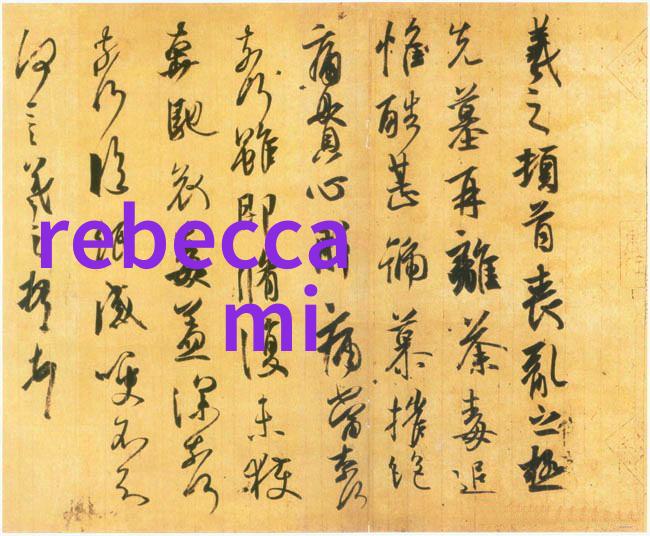 羲之頓首喪亂之極
先墓再離荼毒追
惟酷甚號慕摧絕
痛貫心肝痛當奈何
奈何雖即脩復未獲
奔馳哀毒益深奈何
奈何臨紙感哽不知
何言羲之頓首頓首
rebecca
mi